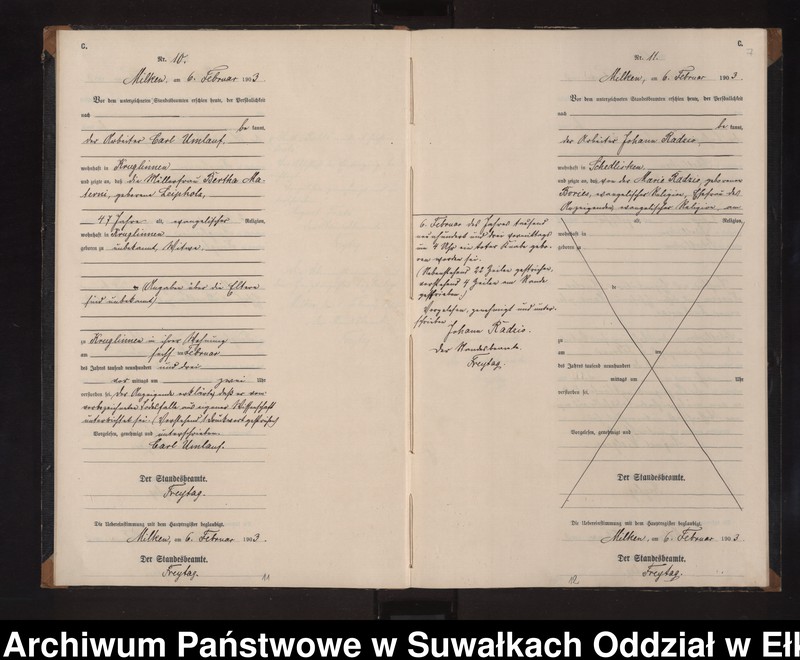 C.
Nr. 10.
Milken, am 6. Februar 1903.
Vor dem unterzeichneten Standesbeamten erschien heute, der Persönlichkeit
nach
be kannt,
der Arbeiter Carl Umlauf,
wohnhaft in Kruglinnen
und zeigte an, daß die Müllerfrau Bertha Ma-
terni, geborene Leipholz,
47 Jahre alt, evangelischer Religion,
wohnhaft in Kruglinnen
geboren zu unbekannt, Witwe
(Angaben über die Eltern
sind unbekannt)
zu Kruglinnen in ihrer Wohnung
am sechsten Februar
des Jahres tausend neunhundert und drei
vor mittags um zwei Uhr
verstorben sei, der Anzeigende erklärte, daß er von
vorbezeichneten Todesfalle aus eigener Wissenschaft
unterrichtet sei. (Vorstehend 1 Druckwort gestrichen)
Vorgelesen, genehmigt und unterschrieben
Carl Umlauf.
Der Standesbeamte.
Freytag.
Die Uebereinstimmung mit dem Hauptregister beglaubigt.
Milken, am 6. Februar 1903.
Der Standesbeamte.
Freytag.
11
C.
7
Nr. 11.
Milken, am 6. Februar 1903.
Vor dem unterzeichneten Standesbeamten erschien heute, der Persönlichkeit
nach
be kannt,
der Arbeiter Johann Radzio,
wohnhaft in Schedlisken,
und zeigte an, daß von der Marie Radzio, geborenen
evangelischer Religion, Ehefrau des
Anzeigenden evangelischer Religion, am
6. Februar des Jahres tausend
neunhundert und drei vormittags
um 4 Uhr ein toter Knabe gebo-
ren worden sei.
(Nebenstehend 22 Zeilen gestrichen,
vorstehend 4 Zeilen am Rande
geschrieben.)
Vorgelesen, genehmigt und unter-
schrieben
Johann Radzio.
Der Standesbeamte.
Freytag.
alt, Religion,
wohnhaft in
geboren zu
in
zu
am ten
des Jahres tausend neunhundert
mittags um Uhr
verstorben sei.
Vorgelesen, genehmigt und
Der Standesbeamte.
Die Uebereinstimmung mit dem Hauptregister beglaubigt.
Milken, am 6. Februar 1903.
Der Standesbeamte.
Freytag.
12
Archiwum Państwowe w Suwałkach Oddział w Ełk